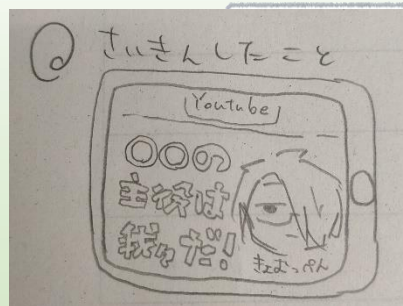 @ さいきんしたこと
Youtube
〇〇の
主役は
我々だ!